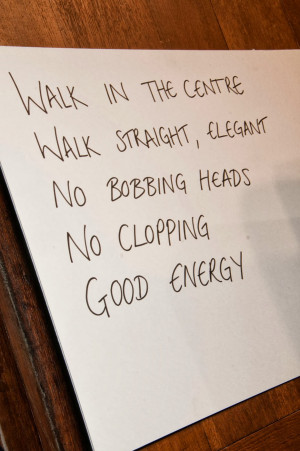 WALK IN THE CENTRE
WALK STRAIGHT, ELEGANT
NO BOBBING HEADS
NO CLOPPING
GOOD ENERGY